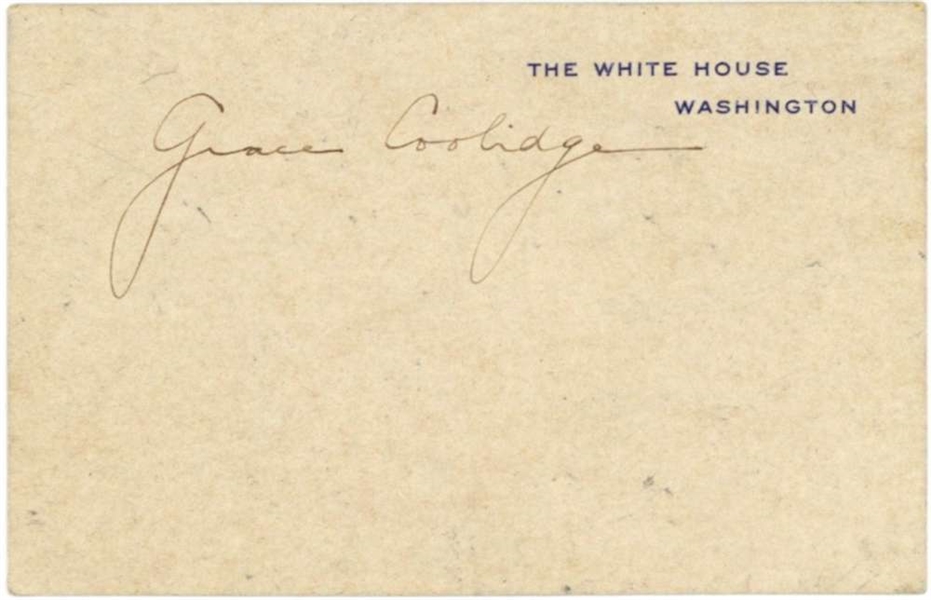 THE WHITE HOUSE
WASHINGTON
Grace Coolidge